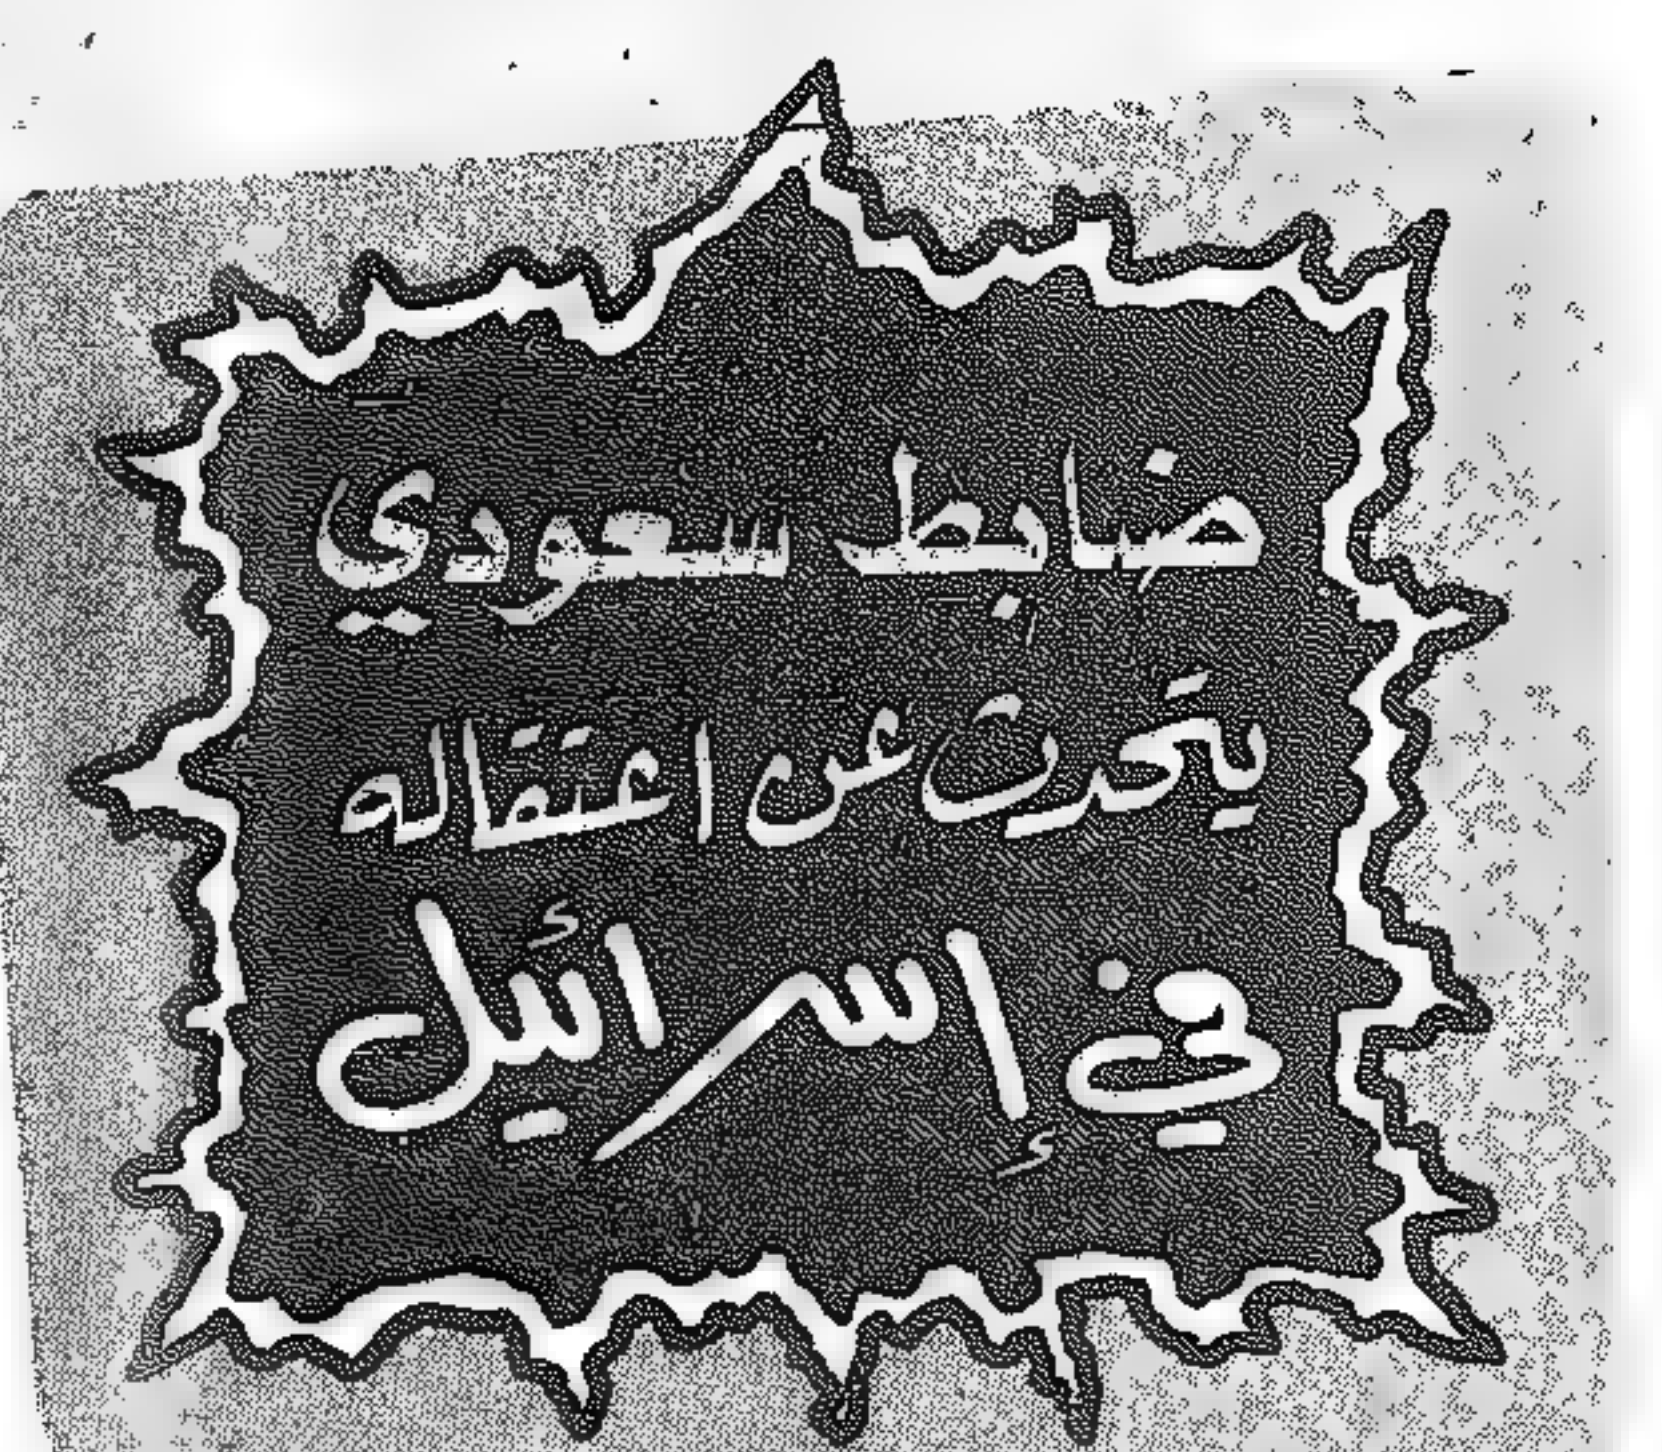 ضابط سعودي
يتحدث عن اعتقاله
في إسرائيل